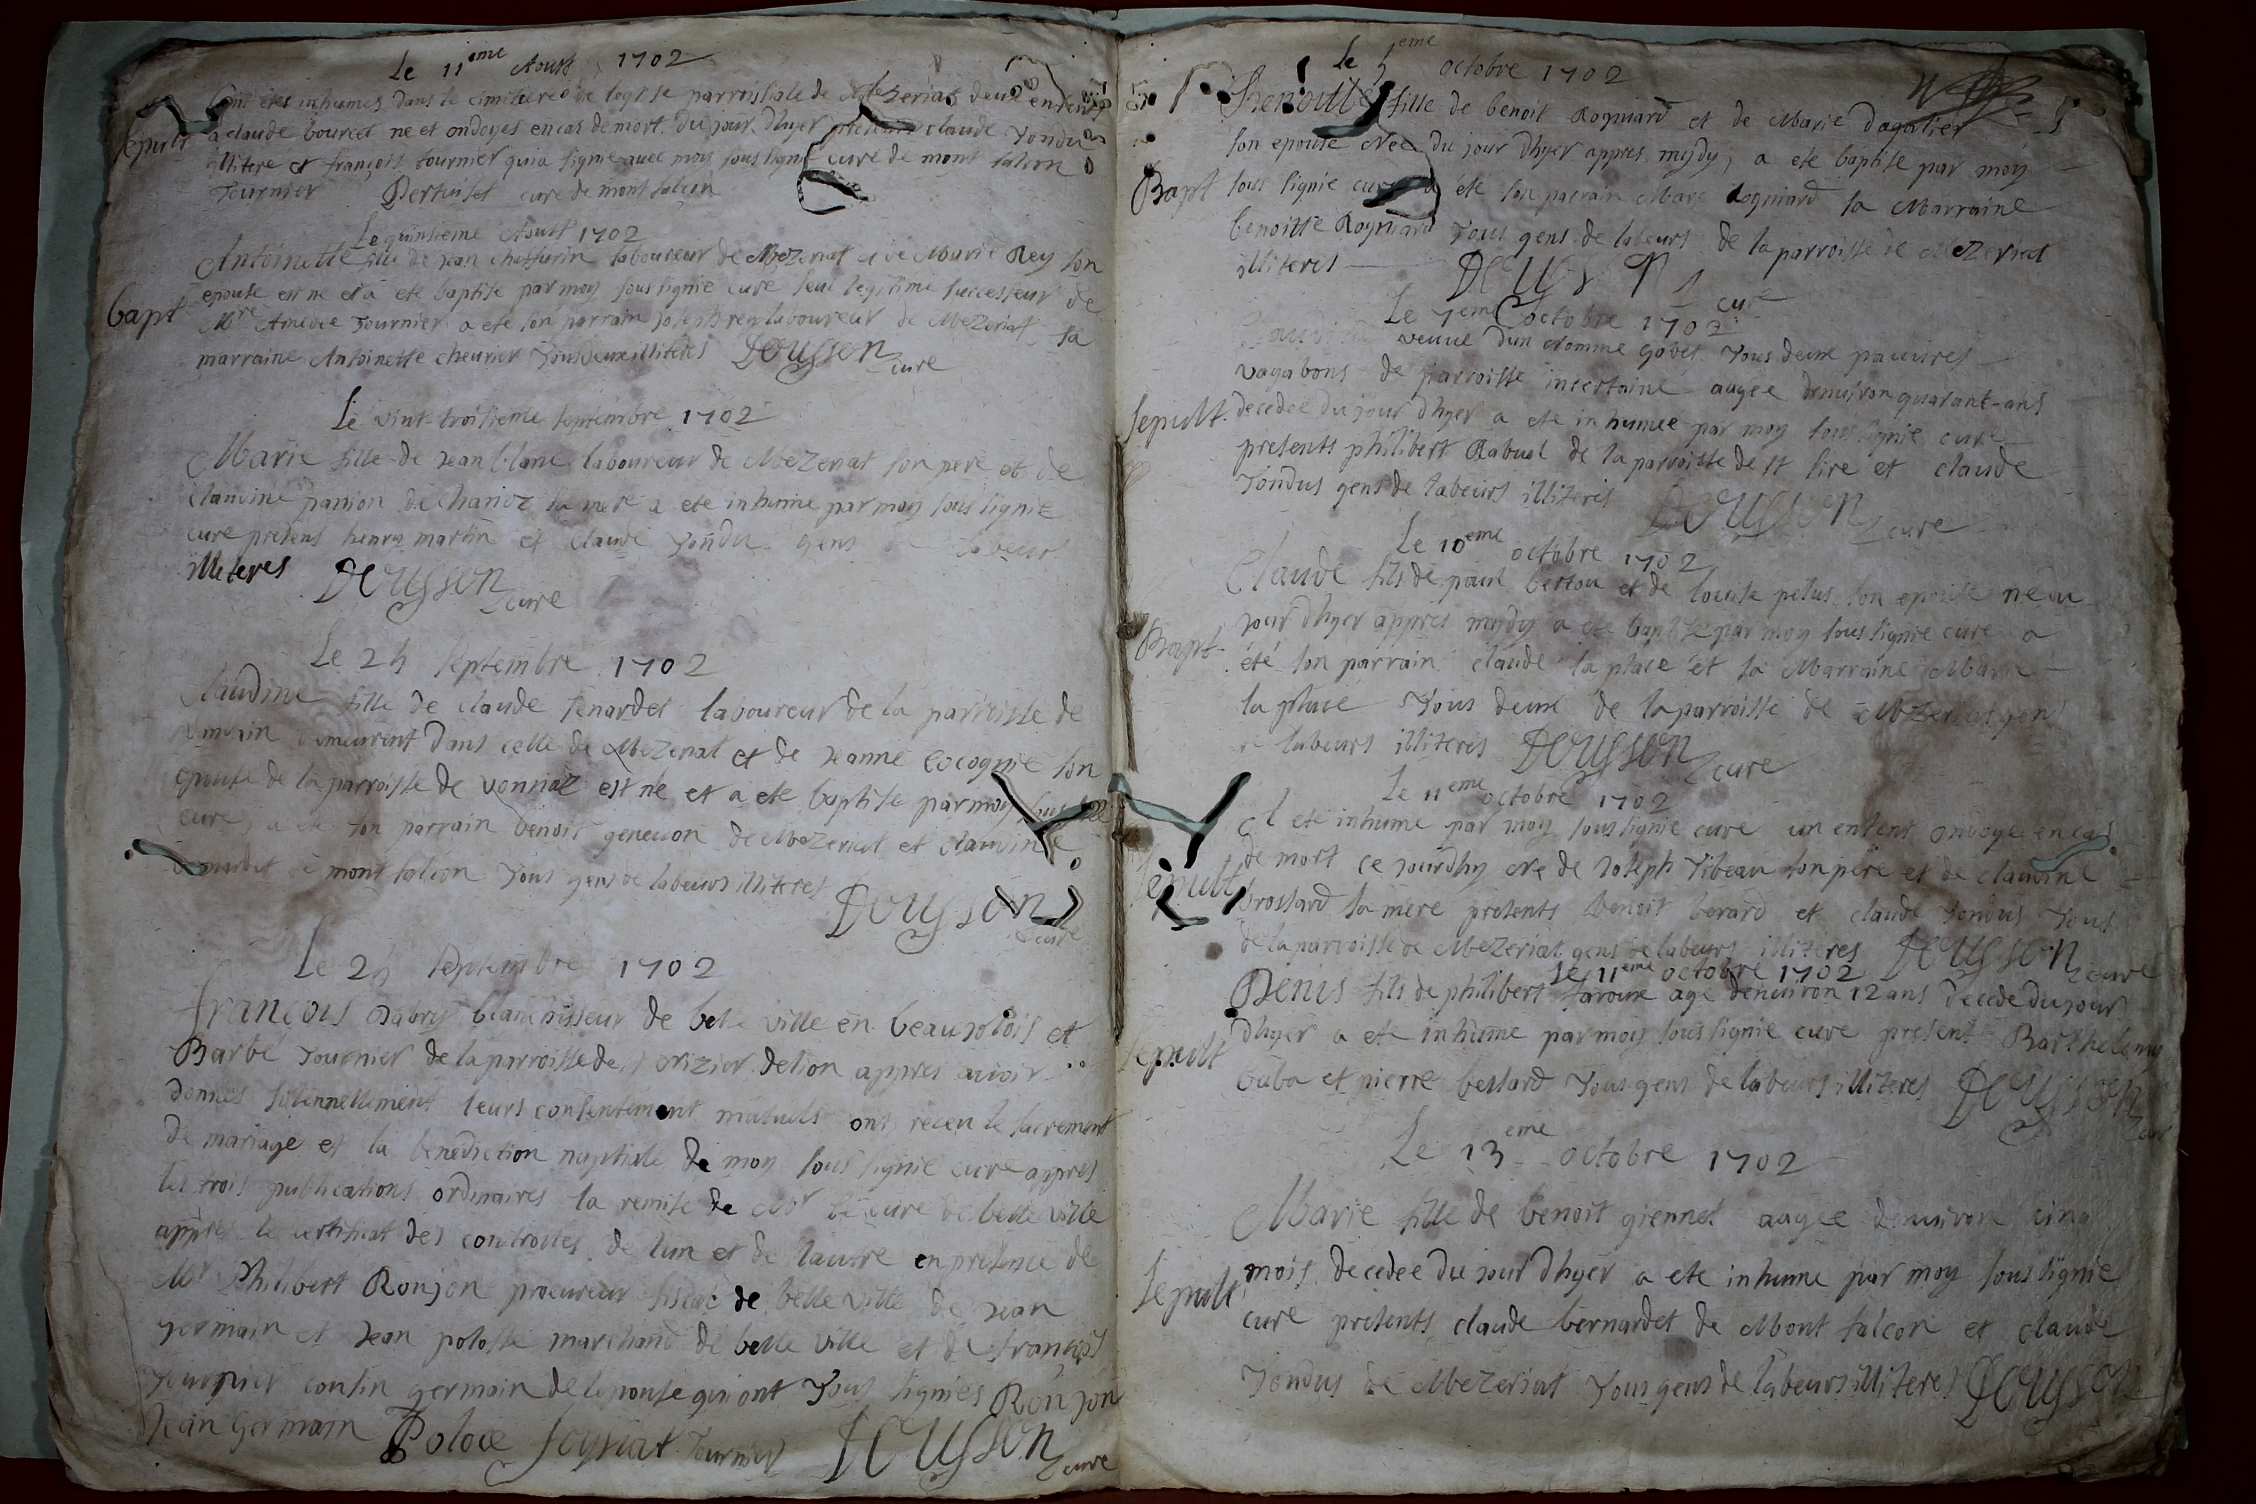 Le 11eme Aoust 1702
sont etes inhumes dans le cimitiere de leglise parroissiale de Mezeriat deux enfens
Sepult
a claude bourcet ne et ondoyes en cas de mort du jour dhyer presents claude Tondu
illitere et françois tournier qui a signe avec moy sous signe cure de mont falcon
Tournier Pertuiset cure de mont falcon
Le quinsieme Aoust 1702
Antoinette fille de Jean laboureur de Mezeriat et de Marie Rey son
bapt
epouse est ne et a ete baptise par moy sous signie cure seul legitime successeur de
Mre Amedee Tournier a ete son parrain Joseph rey laboureur de Mezeriat sa
marraine Antoinette chevrier Tous deux illiteres Dousson cure
Le vint troisieme septembre 1702
Marie fille de Jean blanc laboureur de Mezeriat son pere et de
claudine de sa mere a ete inhume par moy sous signie
cure presens henry martin et claude Tondu gens de labeurs
illiteres Dousson cure
Le 24 septembre 1702
Claudine fille de claude laboureur de la parroisse de
demeurent dans celle de Mezeriat et de Jeanne cocogne son
epouse de la parroisse de vonnaz est ne et a ete baptise par moy sous signie
cure, a ete son parrain benoit genevon de Mezeriat et claudine
a mont falcon Tous gens de labeurs illiteres Dousson
cure
Le 24 septembre 1702
françois Dabry blanchisseur de belle ville en beaujolois et
Barbe Tournier de la parroisse de st nizier de lion appres avoir
donnes solennellement leurs consentement mutuels ont receu le sacrement
de mariage et la benediction nuptiale de moy sous signie cure appres
les trois publications ordinaires la remise de Mr le cure de belle ville
appres le certificat des controlles de lun et de lautre en presence de
Mr Philibert Ronjon procureur fiscal de belle ville de Jean
germain et Jean polosse marchand de belle ville et de françois
Tournier cousin germain de lepouse qui ont Tous signies Ronjon
Jean Germain Poloce Tournier Dousson cure
Le 5eme octobre 1702
Benoitte fille de benoit Rogniard et de Marie dagalier
son epouse Nee du jour dhyer appres mydy, a ete baptise par moy
Bapt
sous signie cure a ete son parrain Marc Rogniard sa Marraine
benoitte Rogniard Tous gens de labeurs de la parroisse de Mezeriat
illiteres Dousson cure
Le 7eme octobre 1702
veuve dun Nomme gobet Tous deux pauvres
vagabons de parroisse incertaine augee denviron quarant-ans
Sepult.
decedee du jour dhyer a ete inhumee par moy sous signie cure
presents philibert Rabuel de la parroisse de st sire et claude
Tondus gens de labeurs illiteres Dousson cure
Le 10eme octobre 1702
Claude fils de paul bertou et de louise pelus son epouse ne du
jour dhyer appres mydy a ete baptise par moy sous signie cure a
Bapt
été son parrain claude la place et sa Marraine Marie
la place Tous deux de la parroisse de Mezeriat gens
de labeurs illiteres Dousson cure
Le 11eme octobre 1702
A ete inhume par moy sous signie cure un enfent ondoye en cas
de mort ce jourdhy Ne de Joseph Tibeau son pere et de claudine
Sepult
brossard sa mere presents benoit berard et claude Tondus Tous
de la parroisse de Mezeriat gens de labeurs illiteres Dousson cure
Le 11eme octobre 1702
Denis fils de philibert age denviron 12 ans decede du jour
dhyer a ete inhume par moy sous signie cure present Barthelemy
Sepult
buba et pierre bessard Tous gens de labeurs illiteres Dousson cure
Le 13eme octobre 1702
Marie fille de benoit giennet augee denviron cinq
mois decedee du jour dhyer a ete inhume par moy sous signie
Sepult
cure presents claude bernardet de Mont falcon et claude
Tondus de Mezeriat Tous gens de labeurs illiteres Dousson